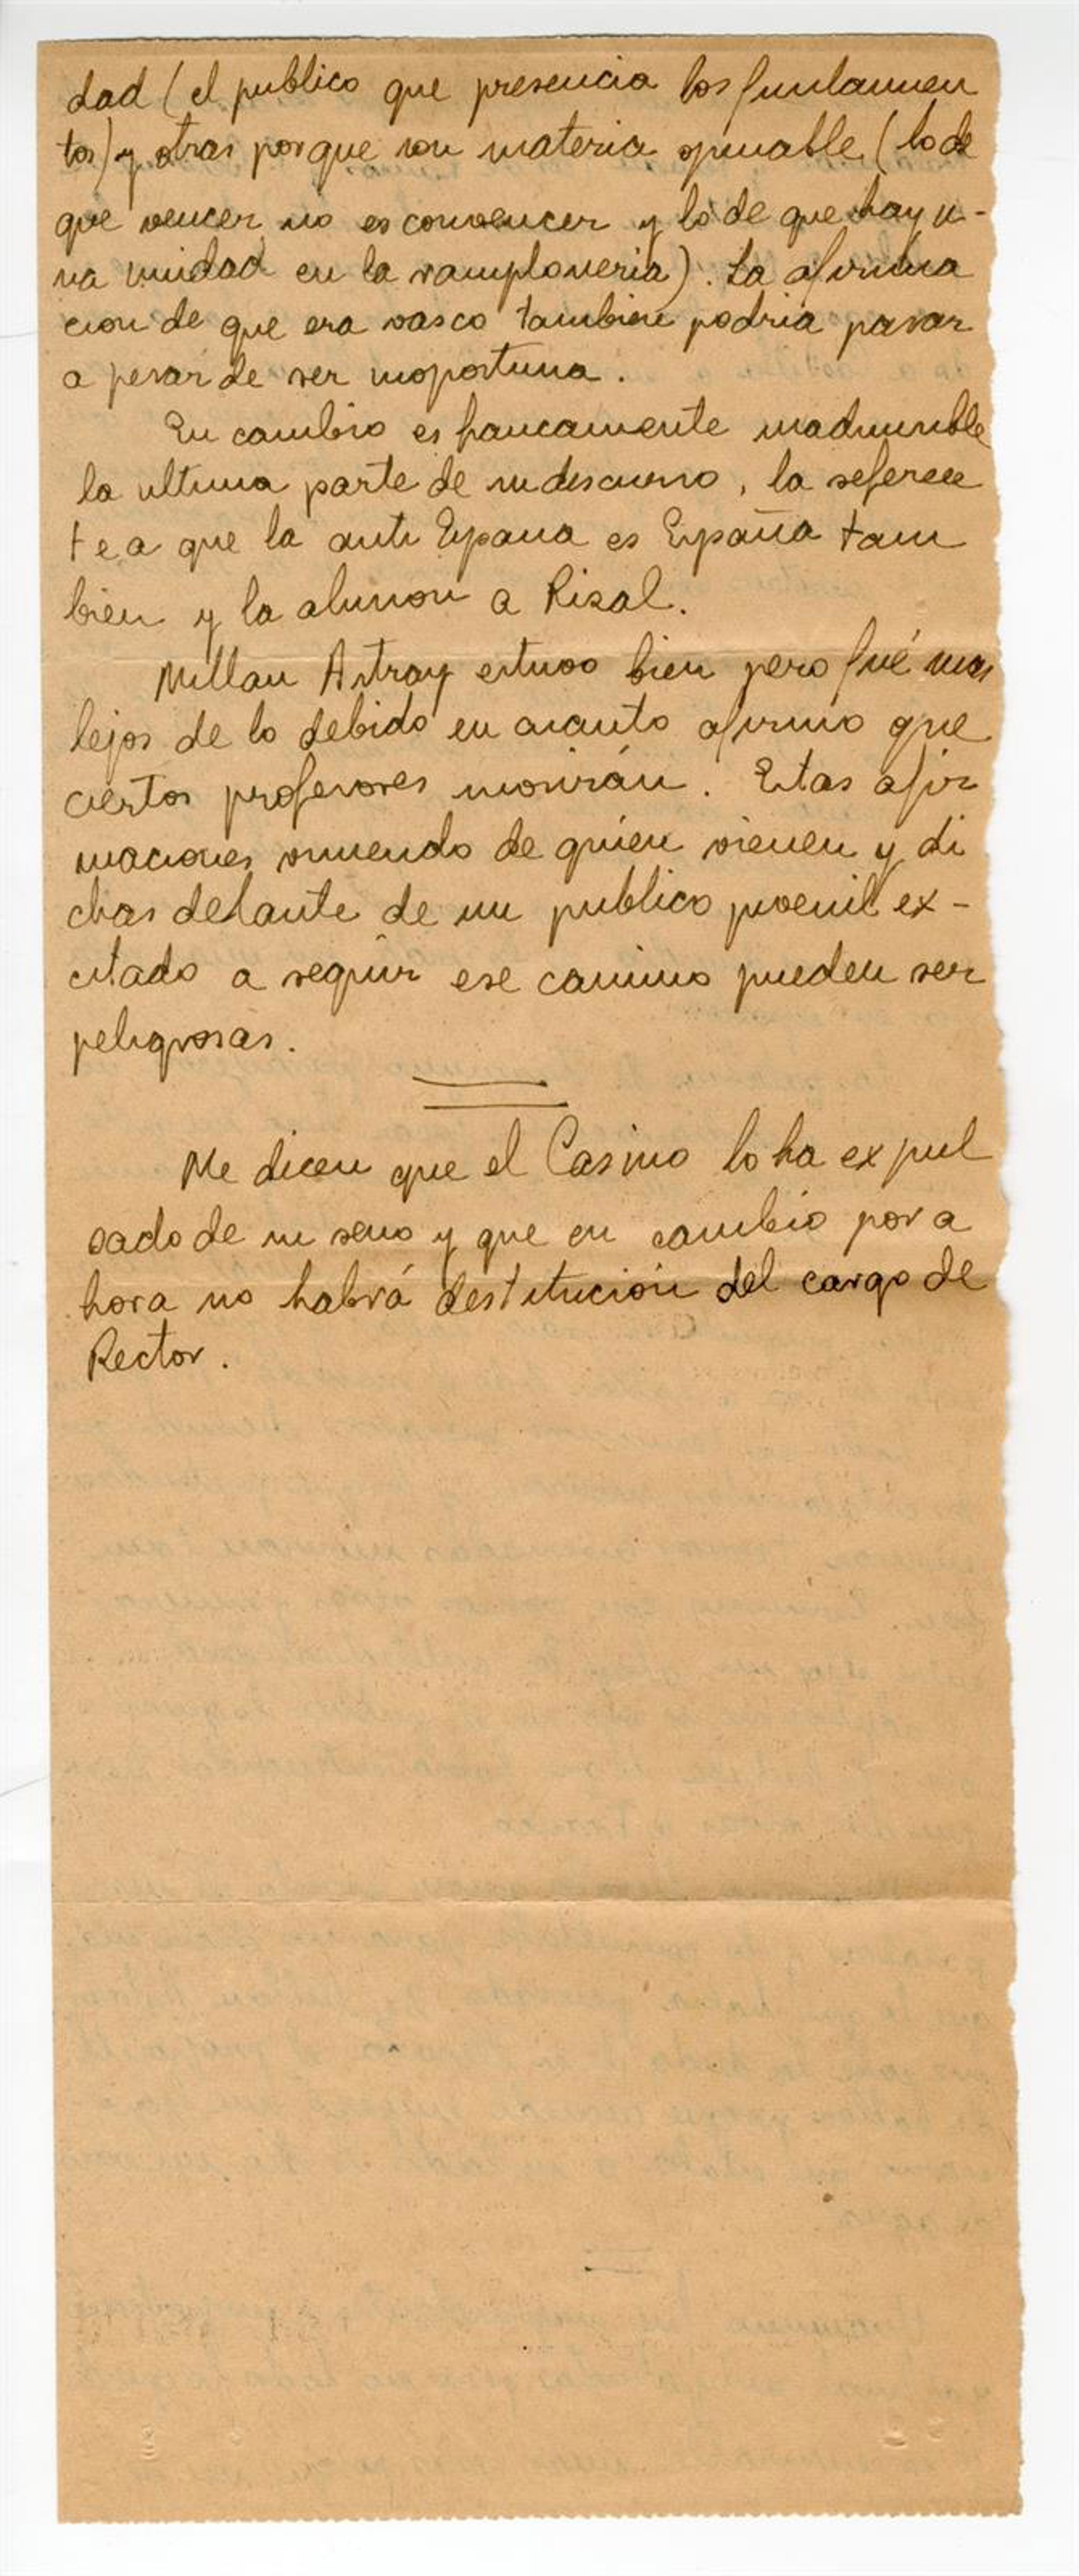 dad (el publico que presencia los fusilamien
tos) y otras porque son materia opinable (lo de
que vencer no es convencer y lo de que hay u-
na unidad en la ramploneria). La afirma
cion de que era vasco tambien podria pasar
a pesar de ser inoportuna.
En cambio es francamente inadmisible
la ultima parte de su discurso, la referen
te a que la anti España es España tam
bien y la alusion a Rizal.
Millan Astray estuvo bien pero fué mas
lejos de lo debido en cuanto afirmó que
ciertos profesores morirán. Estas afir
maciones viniendo de quien vienen y di
chas delante de un publico juvenil ex-
citado a seguir ese camino pueden ser
peligrosas.
Me dicen que el Casino lo ha expul
sado de su seno y que en cambio por a
hora no habrá destitución del cargo de
Rector.